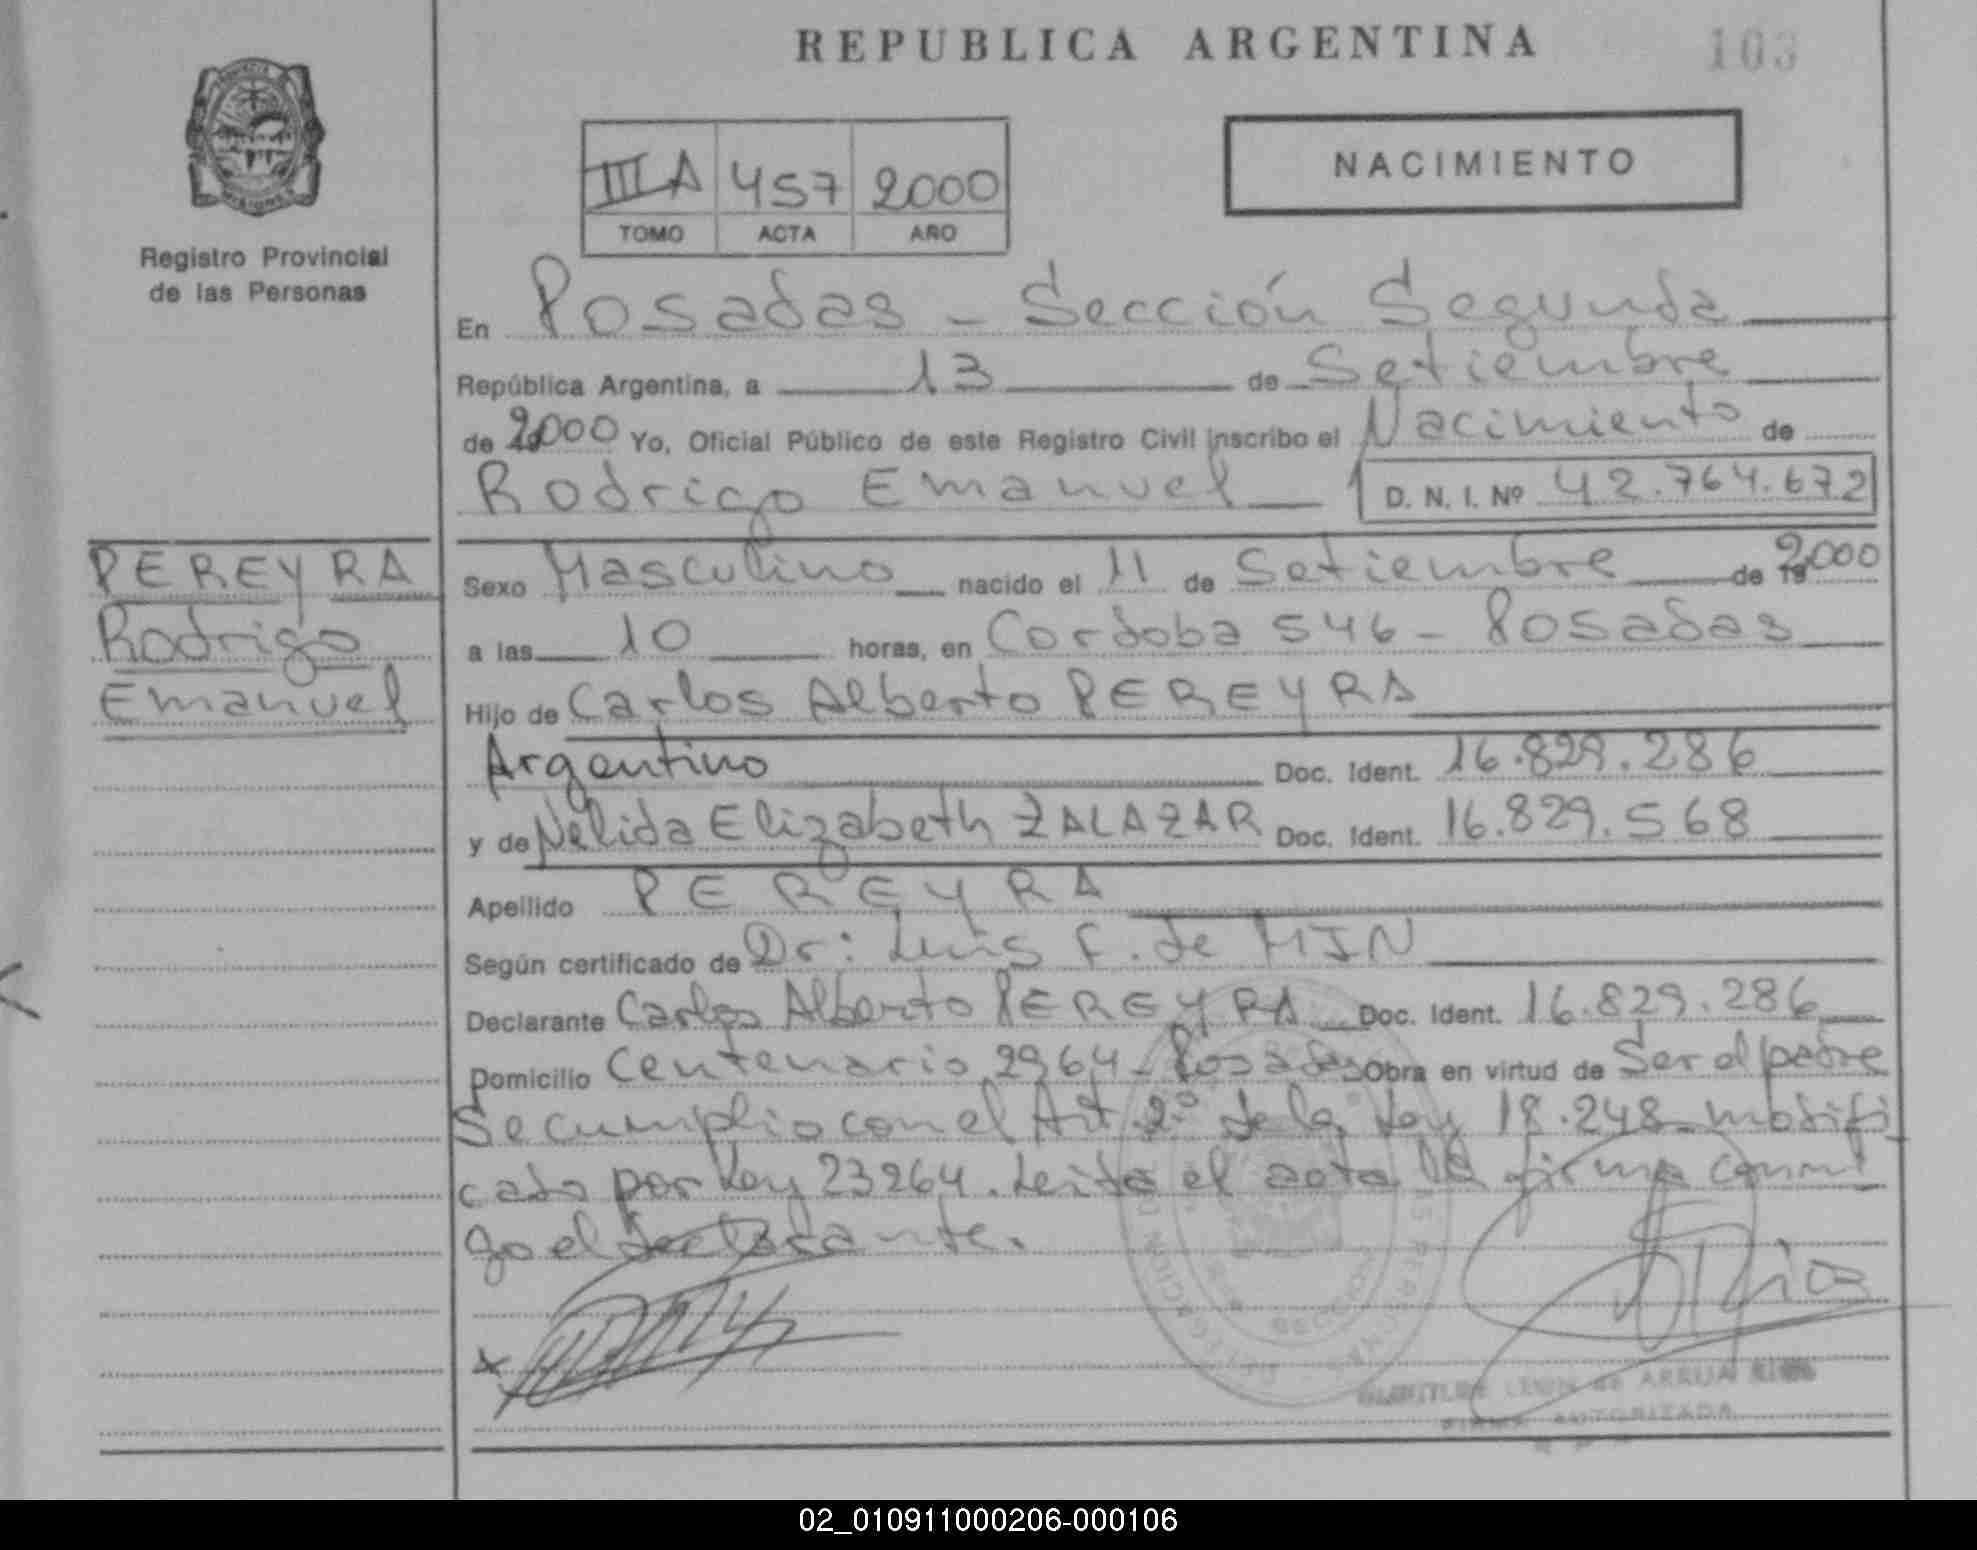 REPUBLICA ARGENTINA
103
NACIMIENTO
IIIA 457 2000
TOMO ACTA AÑO
Registro Provincial
de las Personas
En Posadas - Sección Segunda
República Argentina, a 13 de Setiembre
de 2000 Yo, Oficial Público de este Registro Civil inscribo el Nacimiento de
Rodrigo Emanuel D. N. I. Nº 42.764.672
PEREYRA
Rodrigo
Emanuel
Sexo Masculino nacido el 11 de Setiembre de 2000
a las 10 horas, en Cordoba 546 - Posadas
Hijo de Carlos Alberto PEREYRA
Argentino Doc. Ident. 16.829.286
y de Nélida Elizabeth ZALAZAR Doc. Ident. 16.829.568
Apellido PEREYRA
Según certificado de Dr: Luis F. de MIN
Declarante Carlos Alberto PEREYRA Doc. Ident. 16.829.286
Domicilio Centenario 2964 - Posadas Obra en virtud de Ser el padre
Se cumplio con el Art. 2º de la Ley 18.248 modifi
cado por Ley 23264. Leida el acta la firma conmi
go el declarante.
LEON de ARRUA
FIRMA AUTORIZADA
02_010911000206-000106